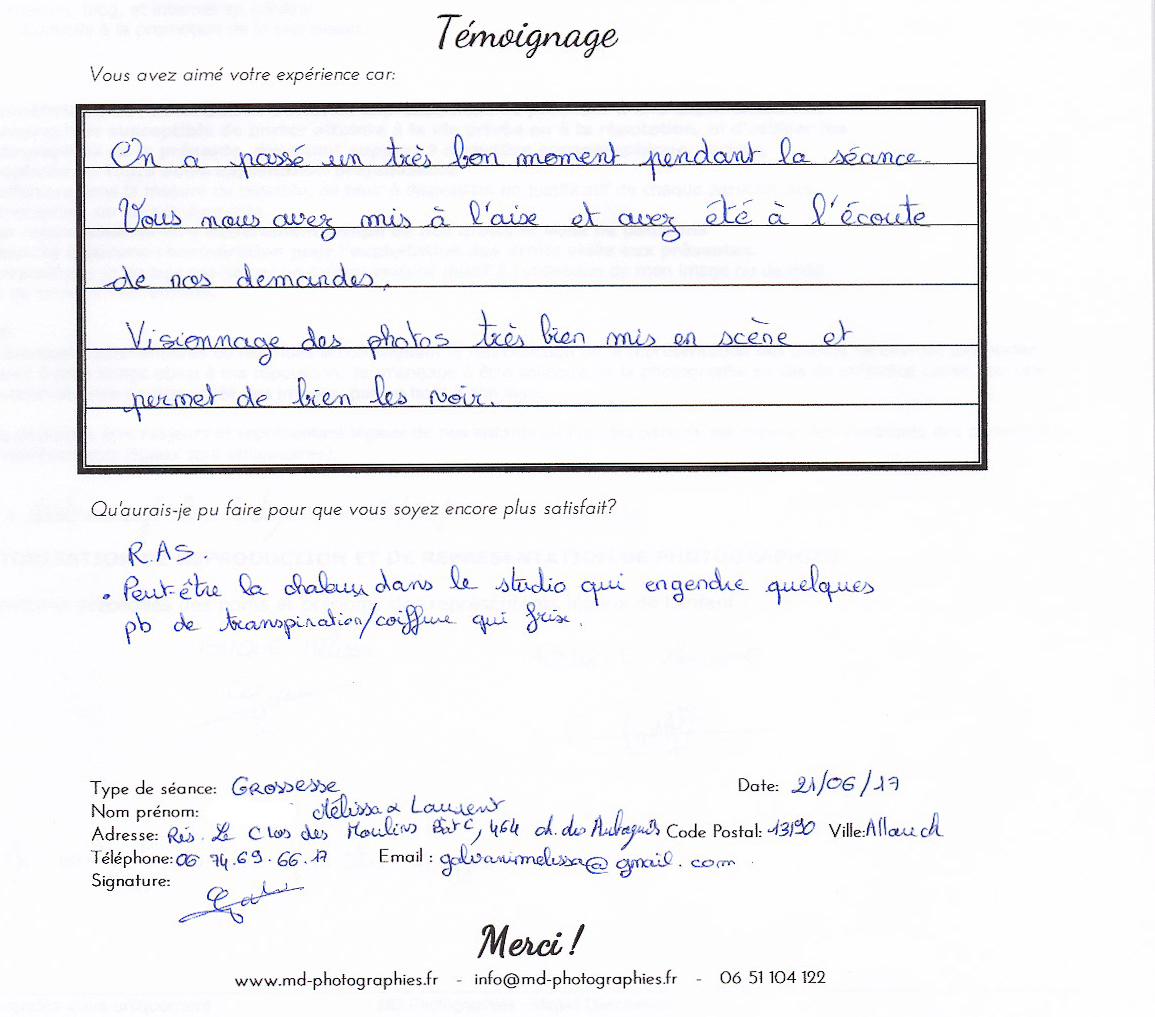 Témoignage
Vous avez aimé votre expérience car:
On a passé un très bon moment pendant la séance.
Vous nous avez mis à l'aise et avez été à l'écoute
de nos demandes.
Visionnage des photos très bien mis en scène et
permet de bien les voir.
Qu'aurais-je pu faire pour que vous soyez encore plus satisfait?
R.A.S.
• Peut-être la chaleur dans le studio qui engendre quelques
pb de transpiration/coiffure qui frise.
Type de séance: Grossesse Date: 21/06/17
Nom prénom: Mélissa & Laurent
Adresse: Rés. Le Clos des Moulins Bât C, 464 ch. des Code Postal: 13190 Ville: Allauch
Téléphone: 06 74.69.66.17 Email : galvanimelissa@gmail.com
Signature:
Merci !
www.md-photographies.fr - info@md-photographies.fr - 06 51 104 122